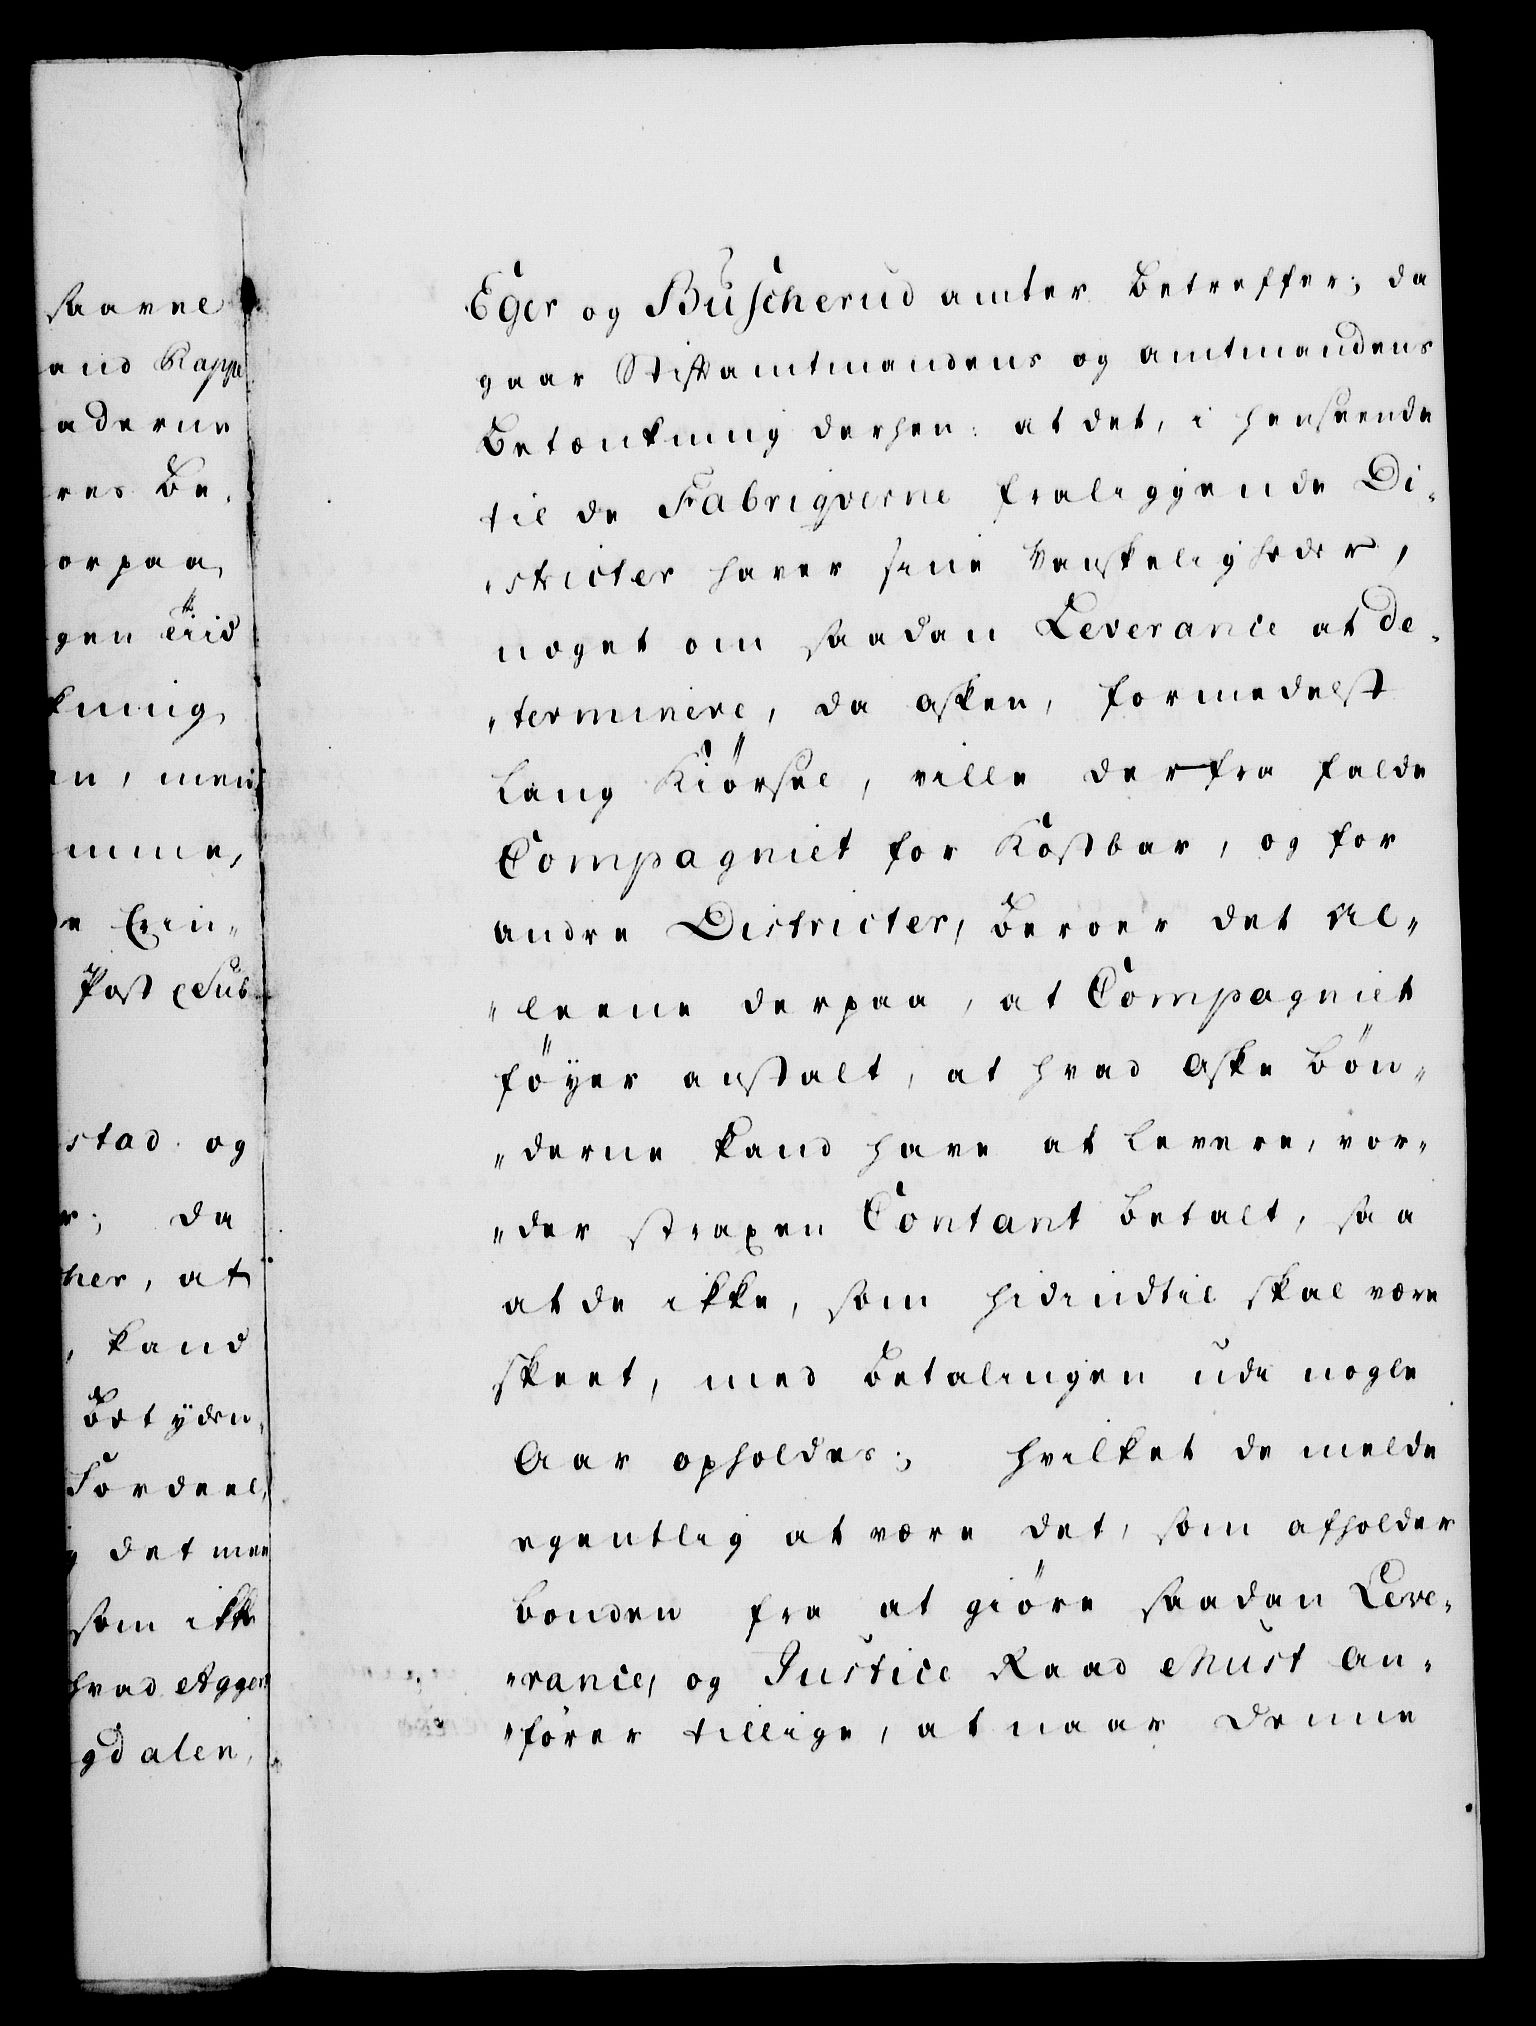 saavel
and Rappe
aderne
res Be„
orpaa,
gen Tiid
kning,
en, men
mme,
e Erin„
Post Sub
stad og
r; da
her, at
, kand
Betyden„
Fordeel,
det mee
som ikke
hvad Agger
gdalen,
Eger og Buscherud amter betreffer; da
gaar Stiftamtmandens og amtmandens
Betænkning derhen: at det, i henseende
til de Fabriqverne fraliggende Di„
„stricter haver sine Vanskeligheder,
noget om saadan Leverance at de„
„terminere, da asken, formedelst
lang Kiörsel, ville derfra falde
Compagniet for Kostbar, og for
andre Districter, beroer det al„
„leene derpaa, at Compagniet
föyer anstalt, at hvad Aske bön„
„derne kand have at levere, vor„
„der straxen Contant betalt, saa
at de ikke, som hidindtil skal være
skeet, med betalingen udi nogle
Aar opholdes; hvilket de melde
egentlig at være det, som afholder
bonden fra at giöre saadan Leve„
„rance, og Justice Raad Must an„
„förer tillige, at naar denne